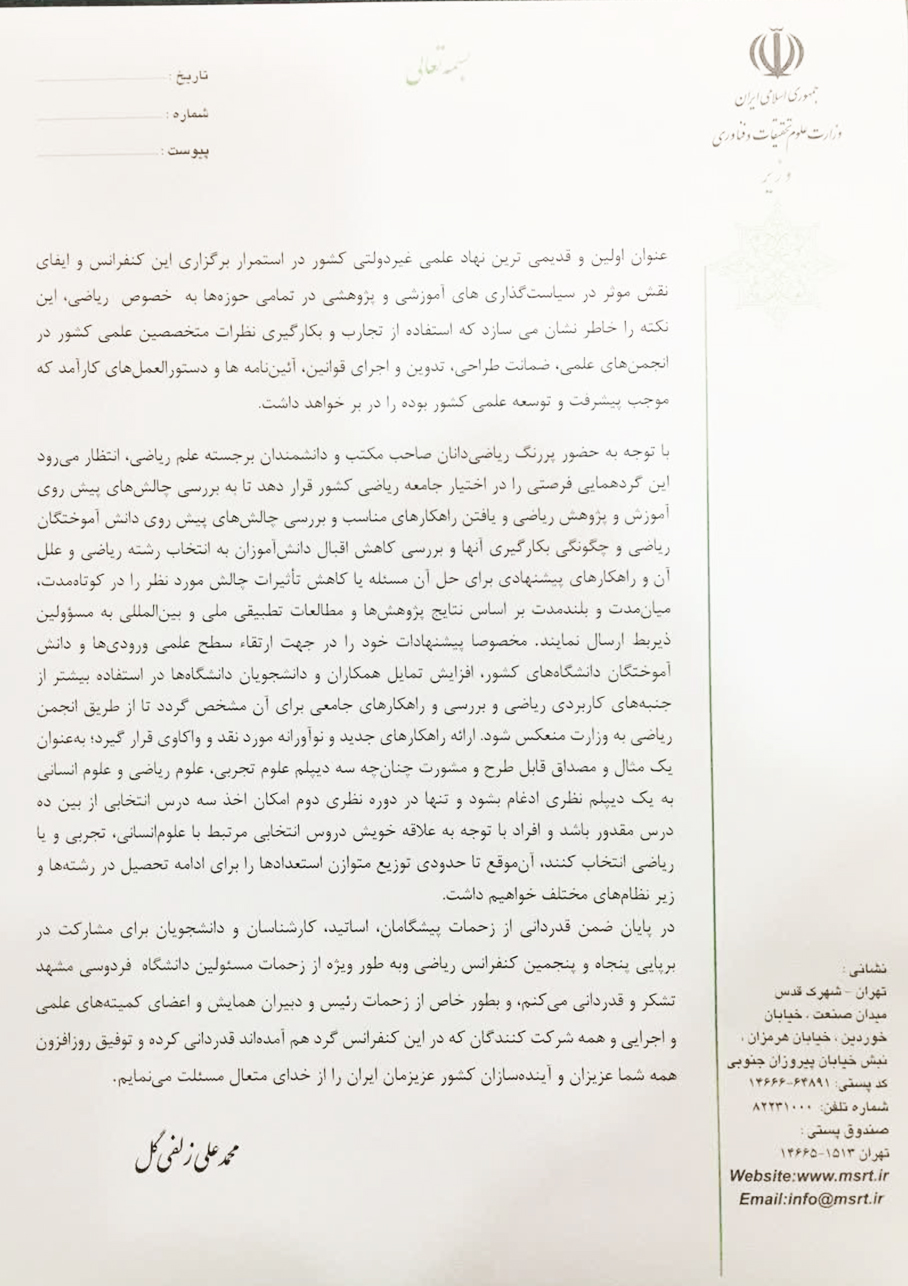 بسمه تعالی
جمهوری اسلامی ایران
وزارت علوم تحقیقات و فناوری
وزیر
تاریخ :
شماره :
پیوست :
عنوان اولین و قدیمی ترین نهاد علمی غیردولتی کشور در استمرار برگزاری این کنفرانس و ایفای
نقش موثر در سیاست‌گذاری های آموزشی و پژوهشی در تمامی حوزه‌ها به خصوص ریاضی، این
نکته را خاطر نشان می سازد که استفاده از تجارب و بکارگیری نظرات متخصصین علمی کشور در
انجمن‌های علمی، ضمانت طراحی، تدوین و اجرای قوانین، آئین‌نامه ها و دستورالعمل‌های کارآمد که
موجب پیشرفت و توسعه علمی کشور بوده را در بر خواهد داشت.
با توجه به حضور پررنگ ریاضی‌دانان صاحب مکتب و دانشمندان برجسته علم ریاضی، انتظار می‌رود
این گردهمایی فرصتی را در اختیار جامعه ریاضی کشور قرار دهد تا به بررسی چالش‌های پیش روی
آموزش و پژوهش ریاضی و یافتن راهکارهای مناسب و بررسی چالش‌های پیش روی دانش آموختگان
ریاضی و چگونگی بکارگیری آنها و بررسی کاهش اقبال دانش‌آموزان به انتخاب رشته ریاضی و علل
آن و راهکارهای پیشنهادی برای حل آن مسئله یا کاهش تأثیرات چالش مورد نظر را در کوتاه‌مدت،
میان‌مدت و بلندمدت بر اساس نتایج پژوهش‌ها و مطالعات تطبیقی ملی و بین‌المللی به مسؤولین
ذیربط ارسال نمایند. مخصوصا پیشنهادات خود را در جهت ارتقاء سطح علمی ورودی‌ها و دانش
آموختگان دانشگاه‌های کشور، افزایش تمایل همکاران و دانشجویان دانشگاه‌ها در استفاده بیشتر از
جنبه‌های کاربردی ریاضی و بررسی و راهکارهای جامعی برای آن مشخص گردد تا از طریق انجمن
ریاضی به وزارت منعکس شود. ارائه راهکارهای جدید و نوآورانه مورد نقد و واکاوی قرار گیرد؛ به‌عنوان
یک مثال و مصداق قابل طرح و مشورت چنان‌چه سه دیپلم علوم تجربی، علوم ریاضی و علوم انسانی
به یک دیپلم نظری ادغام بشود و تنها در دوره نظری دوم امکان اخذ سه درس انتخابی از بین ده
درس مقدور باشد و افراد با توجه به علاقه خویش دروس انتخابی مرتبط با علوم‌انسانی، تجربی و یا
ریاضی انتخاب کنند، آن‌موقع تا حدودی توزیع متوازن استعدادها را برای ادامه تحصیل در رشته‌ها و
زیر نظام‌های مختلف خواهیم داشت.
در پایان ضمن قدردانی از زحمات پیشگامان، اساتید، کارشناسان و دانشجویان برای مشارکت در
برپایی پنجاه و پنجمین کنفرانس ریاضی وبه طور ویژه از زحمات مسئولین دانشگاه فردوسی مشهد
تشکر و قدردانی می‌کنم، و بطور خاص از زحمات رئیس و دبیران همایش و اعضای کمیته‌های علمی
و اجرایی و همه شرکت کنندگان که در این کنفرانس گرد هم آمده‌اند قدردانی کرده و توفیق روزافزون
همه شما عزیزان و آینده‌سازان کشور عزیزمان ایران را از خدای متعال مسئلت می‌نمایم.
محمد علی زلفی گل
نشانی :
تهران - شهرک قدس
میدان صنعت ، خیابان
خوردین ، خیابان هرمزان ،
نبش خیابان پیروزان جنوبی
کد پستی: ۶۴۸۹۱-۱۴۶۶۶
شماره تلفن: ۸۲۲۳۱۰۰۰
صندوق پستی :
تهران ۱۵۱۳-۱۴۶۶۵
Website:www.msrt.ir
Email:info@msrt.ir